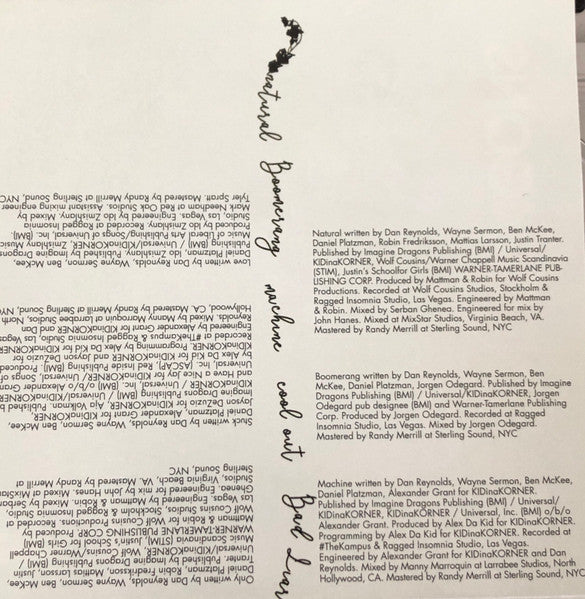 natural Boomerang machine cool out Bad Liar
Natural written by Dan Reynolds, Wayne Sermon, Ben McKee,
Daniel Platzman, Robin Fredriksson, Mattias Larsson, Justin Tranter.
Published by Imagine Dragons Publishing (BMI) / Universal/
KIDinaKORNER, Wolf Cousins/Warner Chappell Music Scandinavia
(STIM), Justin's Schoolfor Girls (BMI) WARNER-TAMERLANE PUB-
LISHING CORP. Produced by Mattman & Robin for Wolf Cousins
Productions. Recorded at Wolf Cousins Studios, Stockholm &
Ragged Insomnia Studio, Las Vegas. Engineered by Mattman
& Robin. Mixed by Serban Ghenea. Engineered for mix by
John Hanes. Mixed at MixStar Studios, Virginia Beach, VA.
Mastered by Randy Merrill at Sterling Sound, NYC
Boomerang written by Dan Reynolds, Wayne Sermon, Ben
McKee, Daniel Platzman, Jorgen Odegard. Published by Imagine
Dragons Publishing (BMI) / Universal/KIDinaKORNER, Jorgen
Odegard pub designee (BMI) and Warner-Tamerlane Publishing
Corp. Produced by Jorgen Odegard. Recorded at Ragged
Insomnia Studio, Las Vegas. Mixed by Jorgen Odegard.
Mastered by Randy Merrill at Sterling Sound, NYC
Machine written by Dan Reynolds, Wayne Sermon, Ben McKee,
Daniel Platzman, Alexander Grant for KIDinaKORNER.
Published by Imagine Dragons Publishing (BMI) / Universal/
KIDinaKORNER, KIDinaKORNER / Universal, Inc. (BMI) o/b/o
Alexander Grant. Produced by Alex Da Kid for KIDinaKORNER.
Programming by Alex Da Kid for KIDinaKORNER. Recorded at
#TheKampus & Ragged Insomnia Studio, Las Vegas.
Engineered by Alexander Grant for KIDinaKORNER and Dan
Reynolds. Mixed by Manny Marroquin at Larrabee Studios, North
Hollywood, CA. Mastered by Randy Merrill at Sterling Sound, NYC
Only written by Dan Reynolds, Wayne Sermon, Ben McKee,
Daniel Platzman, Robin Fredriksson, Mattias Larsson, Justin
Tranter. Published by Imagine Dragons Publishing (BMI) /
Universal/KIDinaKORNER, Wolf Cousins/Warner Chappell
Music Scandinavia (STIM), Justin's School for Girls (BMI)
WARNER-TAMERLANE PUBLISHING CORP. Produced by
Mattman & Robin for Wolf Cousins Productions. Recorded at
Wolf Cousins Studios, Stockholm & Ragged Insomnia Studio,
Las Vegas. Engineered by Mattman & Robin. Mixed by Serban
Ghenea. Engineered for mix by John Hanes. Mixed at MixStar
Studios, Virginia Beach, VA. Mastered by Randy Merrill at
Sterling Sound, NYC
Stuck written by Dan Reynolds, Wayne Sermon, Ben McKee,
Daniel Platzman, Alexander Grant for KIDinaKORNER,
Jayson DeZuzio for KIDinaKORNER, Aja Volkman. Published by
Imagine Dragons Publishing (BMI) / Universal/KIDinaKORNER,
KIDinaKORNER / Universal, Inc. (BMI) o/b/o Alexander Grant
and Have A Nice Jay for KIDinaKORNER/ Universal, Songs of
Universal, Inc. (ASCAP), Red Inside Publishing (BMI). Produced
by Alex Da Kid for KIDinaKORNER and Jayson DeZuzio for
KIDinaKORNER. Programming by Alex Da Kid for KIDinaKORNER
Recorded at #TheKampus & Ragged Insomnia Studio, Las Vegas
Engineered by Alexander Grant for KIDinaKORNER and Dan
Reynolds. Mixed by Manny Marroquin at Larrabee Studios, North
Hollywood, CA. Mastered by Randy Merrill at Sterling Sound, NYC
Love written by Dan Reynolds, Wayne Sermon, Ben McKee,
Daniel Platzman, Ido Zmishlany. Published by Imagine Dragons
Publishing (BMI) / Universal/KIDinaKORNER, Zmishlany Music
/ Music of Liberal Arts Publishing/Songs of Universal, Inc. (BMI).
Produced by Ido Zmishlany. Recorded at Ragged Insomnia
Studio, Las Vegas. Engineered by Ido Zmishlany. Mixed by
Mark Needham at Red Oak Studios. Assistant mixing engineer
Tyler Spratt. Mastered by Randy Merrill at Sterling Sound, NYC